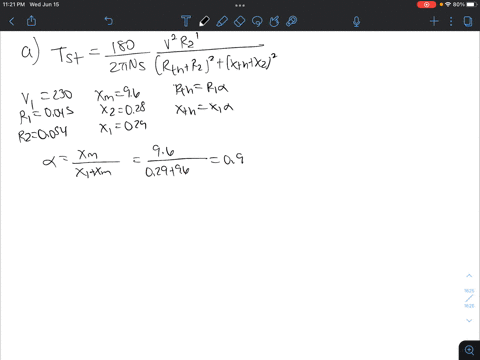 11:21 PM Wed Jun 15
80%
a) Tst = 180/2πNs V²R2'/(Rth+R2)²+(Xth+X2)²
V1 = 230 Xm=9.6 Rth=R1α
R1=0.045 X2=0.28 Xth=X1α
R2=0.054 X1=0.29
α = Xm/X1+Xm = 9.6/0.29+9.6 = 0.9